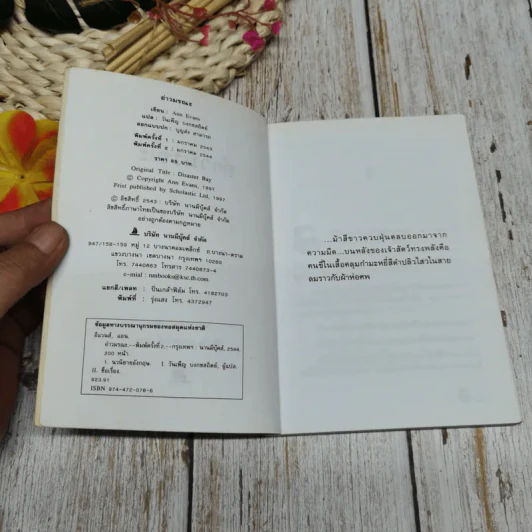 อ่าวมรณะ
เขียน : Ann Evans
แปล : วันเพ็ญ บงกชสถิตย์
ออกแบบปก : บุญส่ง สามารถ
พิมพ์ครั้งที่ 1 : มกราคม 2543
พิมพ์ครั้งที่ 2 : มกราคม 2544
ราคา 85 บาท
Original Title : Disaster Bay
© Copyright Ann Evans, 1997
Print published by Scholastic Ltd, 1997
© ลิขสิทธิ์ 2543 : บริษัท นานมีบุ๊คส์ จำกัด
ลิขสิทธิ์ภาษาไทยเป็นของบริษัท นานมีบุ๊คส์ จำกัด
อย่างถูกต้องตามกฎหมาย
บริษัท นานมีบุ๊คส์ จำกัด
947/158-159 หมู่ 12 บางนาคอมเพล็กซ์ ถ.บางนา-ตราด
แขวงบางนา เขตบางนา กรุงเทพฯ 10260
โทร. 7440863 โทรสาร 7440873-4
e-mial : nmbooks@ksc.th.com
แยกสี/เพลท : ปิ่นเกล้าฟิล์ม โทร. 4182703
พิมพ์ที่ : รุ่งแสง โทร. 4372947
ข้อมูลทางบรรณานุกรมของหอสมุดแห่งชาติ
อีแวนส์, แอน.
อ่าวมรณะ.--พิมพ์ครั้งที่ 2.--กรุงเทพฯ : นานมีบุ๊คส์, 2544.
200 หน้า.
1. นวนิยายอังกฤษ. I. วันเพ็ญ บงกชสถิตย์, ผู้แปล.
II. ชื่อเรื่อง.
823.91
ISBN 974-472-078-6
...ม้าสีขาวควบฝุ่นตลบออกมาจาก
ความมืด...บนหลังของเจ้าสัตว์ทรงพลังคือ
คนขี่ในเสื้อคลุมกำมะหยี่สีดำปลิวไสวในสาย
ลมราวกับผ้าห่อศพ